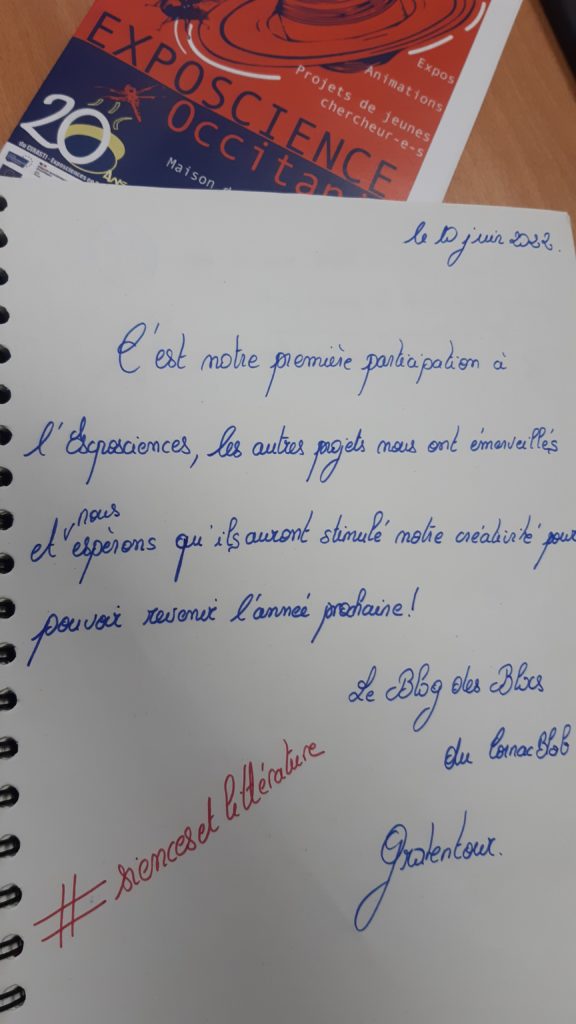 Expos
Animations
Projets de jeunes
chercheur-e-s
EXPOSCIENCE
Occitani
20
ANS
Maison d
le 10 juin 2022.
C'est notre première participation à
l'Exposciences, les autres projets nous ont émerveillés
et nous espérons qu'ils auront stimulé notre créativité pour
pouvoir revenir l'année prochaine!
Le Blog des Blocs
du
Gratentour.
#siences et littérature